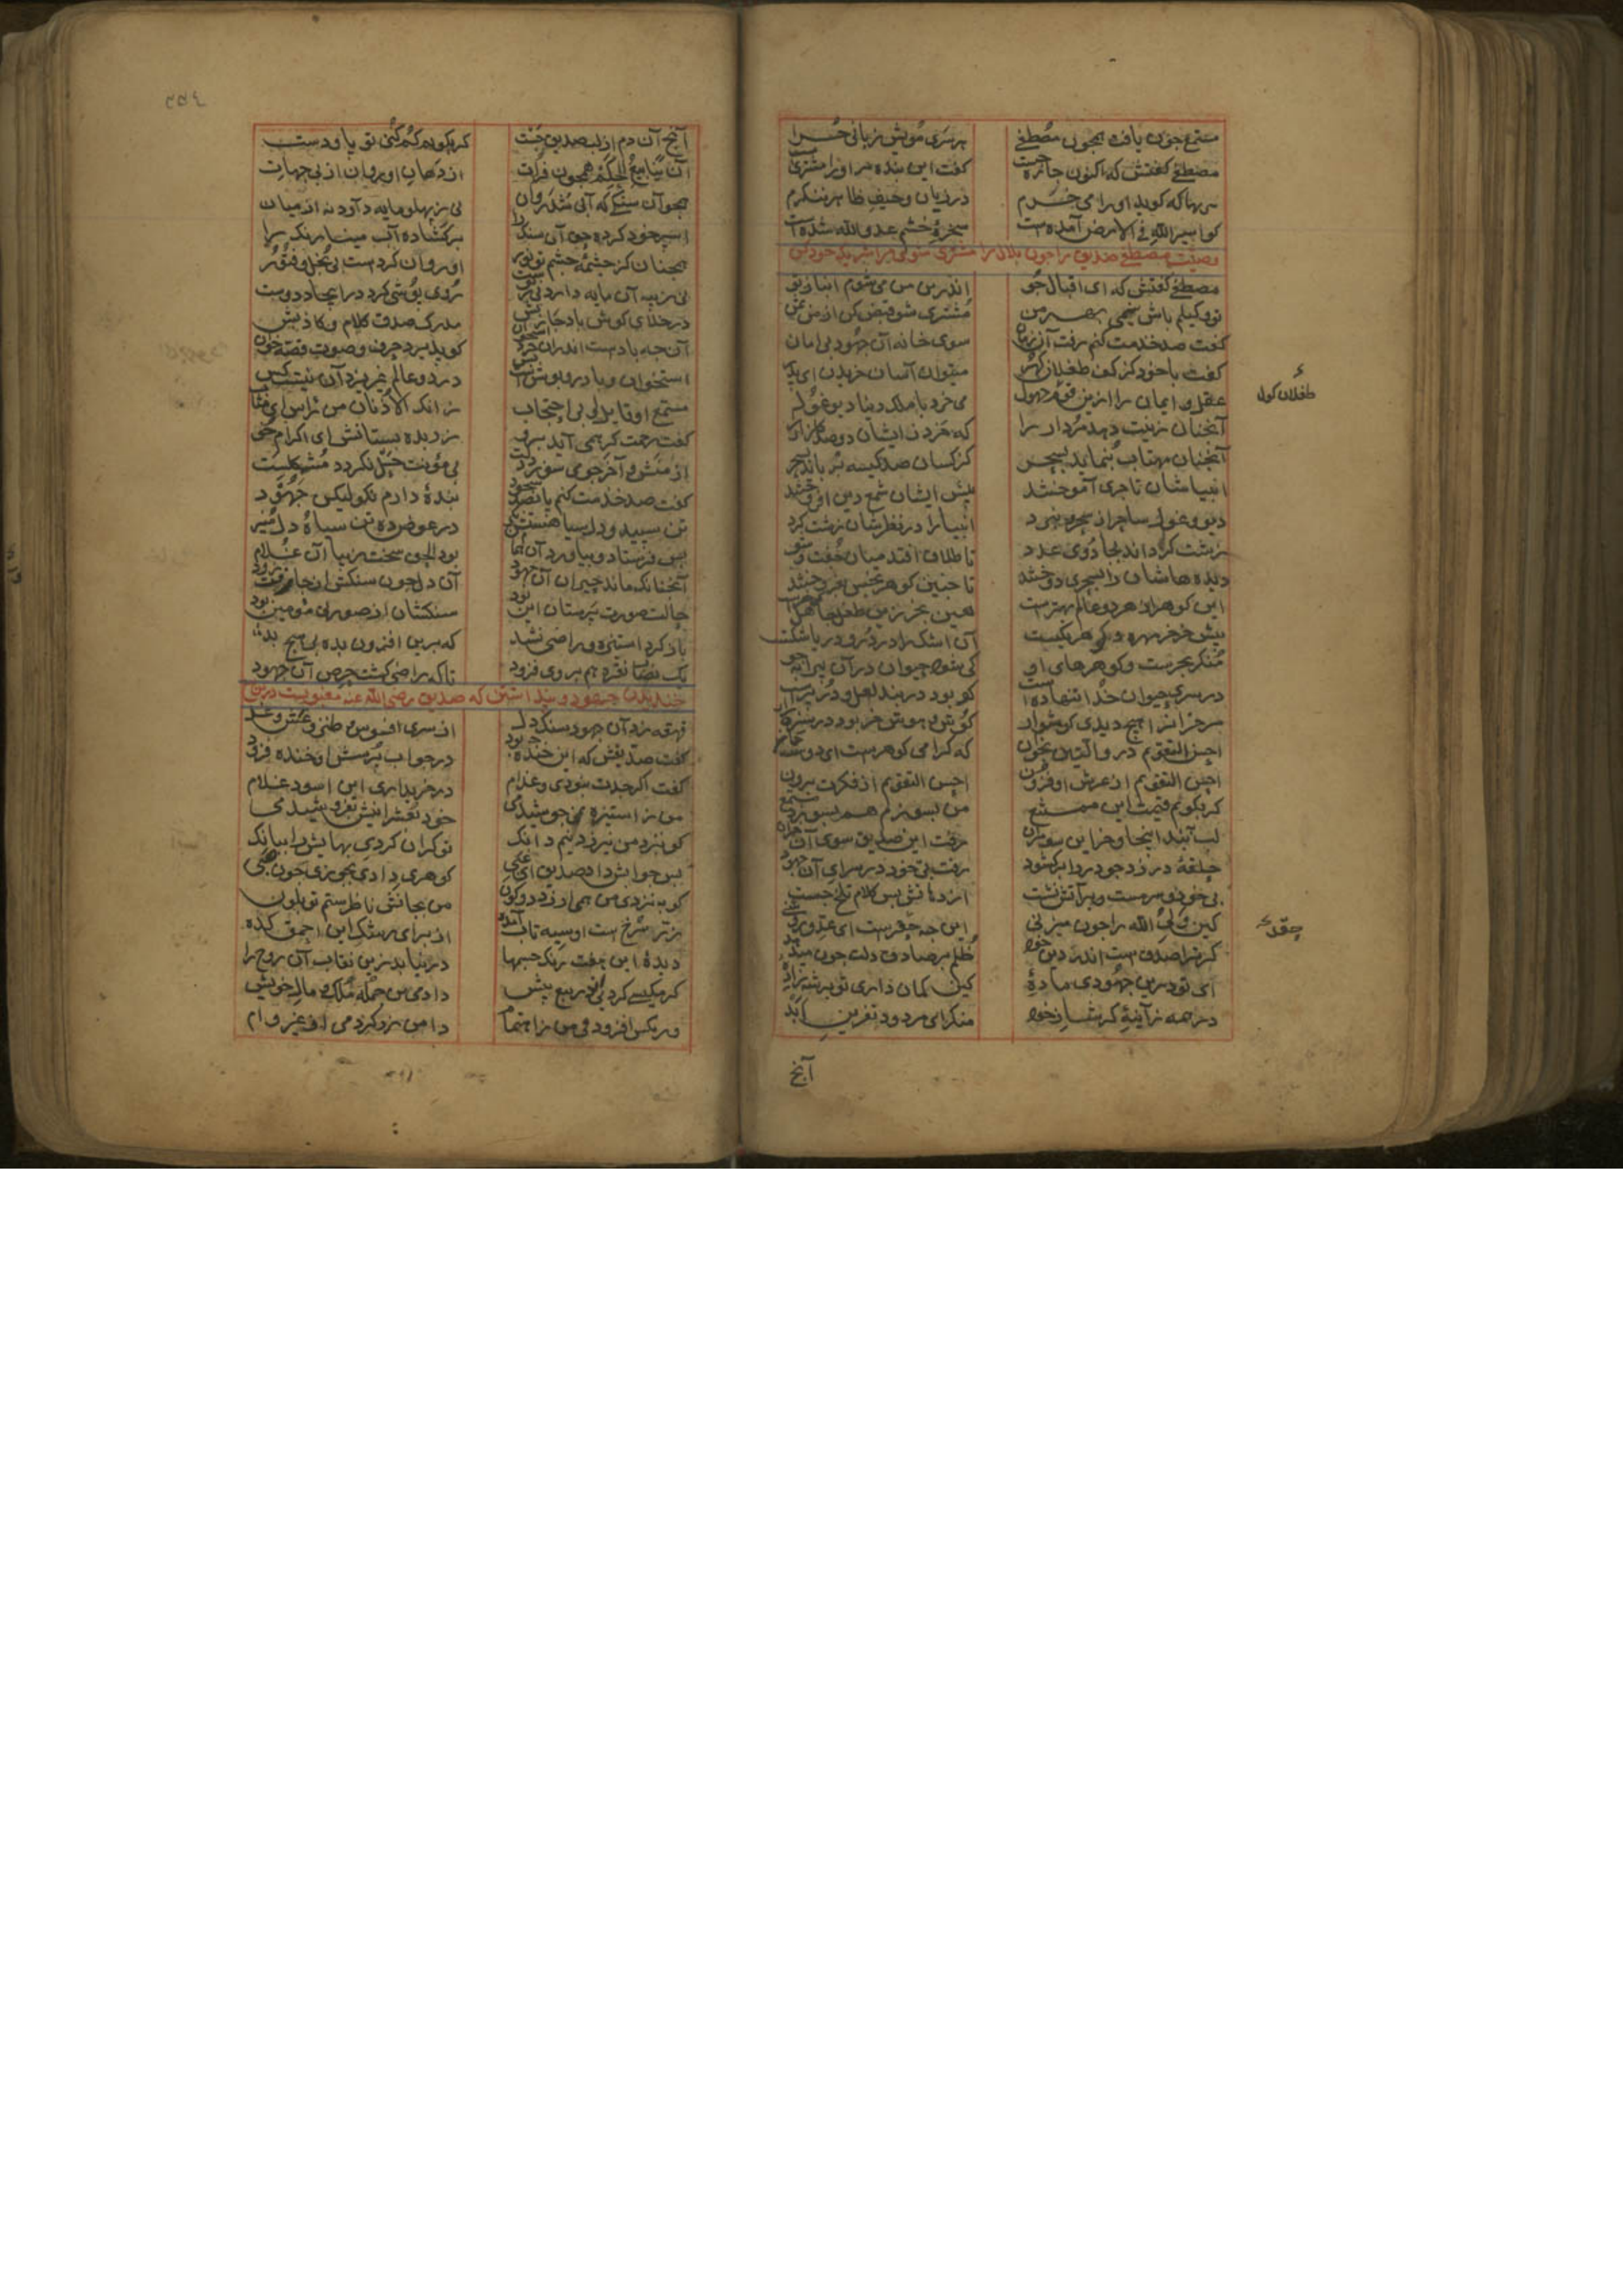 مستمع چون یافت همچون مصطفی هر سر مویش زبانی شد جدا
مصطفی گفتش که اکنون چاره چیست گفت این بنده مر او را مشتریست
هر بها که گوید او را می‌خرم در زیان و حیف ظاهر ننگرم
کو اسیر الله فی الارض آمدست سخره خشم عدو الله شدست
وصیت مصطفی صدیق را چون بلال را مشتری شوی
مصطفی گفتش که ای اقبال جو اندرین من می‌شوم انباز تو
تو وکیلم باش نیمی بهر من مشتری شو قبض کن از من ثمن
گفت صد خدمت کنم رفت آن زمان سوی خانه آن جهود بی امان
گفت با خود کز کف طفلان گهر می‌توان آسان خریدن ای پدر
عقل و ایمان را ازین قوم جهول می خرد با ملک دنیا دیو غول
آنچنان زینت دهد مردار را که خرد زیشان دو صد گلزار را
آنچنان مهتاب بنماید بسحر کز کسان صد کیسه بر باید بسحر
انبیاشان تاجری آموختند پیش ایشان شمع دین افروختند
دیو و غول ساحر از سحر و نبرد انبیا را در نظرشان زشت کرد
زشت گرداند بجادوی عدو تا طلاق افتد میان جفت و شو
دیده هاشان را بسحری دوختند تا چنین گوهر بخس بفروختند
این گوهر از هر دو عالم بهترست هین بخر زین طفل جاهل
پیش خر خرمهره و گوهر یکیست آن اشک را در در و دریا شکیست
منکر بحرست و گوهرهای او کی بود حیوان در آن پیرایه جو
در سر حیوان خدا ننهاده است کو بود در بند لعل و در پرست
مر خران را هیچ دیدی گوشوار گوش و هوش خر بود در سبزه زار
احسن التقویم در والتین بخوان که گرامی گوهرست ای دوست
احسن التقویم از عرش او فزون احسن التقویم از فکرت برون
گر بگویم قیمت این ممتنع من بسوزم هم بسوزد مستمع
لب ببند اینجا و خر این سو مران رفت این صدیق سوی آن خران
حلقه در زد چو در را بر گشود رفت بی خود در سرای آن جهود
بی خود و سرمست و پر آتش نشست از دهانش بس کلام تلخ جست
کین ولی الله را چون میزنی این چه حقدست ای عدو روشنی
گر ترا صدقیست اندر دین خود ظلم بر صادق دلت چون میدهد
ای تو در دین جهودی ماده کین گمان داری تو بر شه زاده
در همه ز آینه کژساز خود منگر ای مردود نفرین ابد
طفلان گول
حقد
آنچ
آنچ آن دم از لب صدیق جست گر بگویم گم کنی تو پا و دست
آن ینابیع الحکم همچون فرات از دهان او روان از بی جهات
همچو آن سنگی که آبی شد روان نی ز پهلو مایه دارد نه از میان
اسپر خود کرده حق آن سنگ را بر گشاده آب مینا رنگ را
همچنان کز چشمه چشم تو نور او روان کردست بی بخل و فتور
نی ز پیه آن مایه دارد نی ز پوست روی پوشی کرد در ایجاد دوست
در خلای گوش باد جاذبش مدرک صدق کلام و کاذبش
آن چه بادست اندران خرد استخوان کو پذیرد حرف و صوت قصه خوان
استخوان و باد روپوشست و بس در دو عالم غیر یزدان نیست کس
مستمع او قایل او بی احتجاب زانک الاذنان من الراس ای مثاب
گفت رحمت گر همی آید برو زر بده بستانش ای اکرام خو
از منش وا خر چو می سوزد دلت بی مؤنت حل نگردد مشکلت
گفت صد خدمت کنم پانصد سجود بنده دارم نکو لیکن جهود
تن سپید و دل سیاهستش بگیر در عوض ده تن سیاه و دل منیر
پس فرستاد و بیاورد آن همام بود الحق سخت زیبا آن غلام
آنچنانک ماند حیران آن جهود آن دل چون سنگش از جا رفت زود
حالت صورت پرستان این بود سنگشان از صورتی مومین بود
باز کرد استیزه و راضی نشد که برین افزون بده بی هیچ بد
یک نصاب نقره هم بر وی فزود تا که راضی گشت حرص آن جهود
خندیدن جهود و پنداشتن که صدیق رضی الله عنه مغبونست درین
قهقهه زد آن جهود سنگ دل از سر افسوس و طنز و غش و غل
گفت صدیقش که این خنده چه بود در جواب پرسش او خنده فزود
گفت اگر جدت نبودی و غرام در خریداری این اسود غلام
من ز استیزه نمی جوشیدمی خود بعشر اینش بفروشیدمی
کو بنزد من نیرزد نیم دانگ تو گران کردی بهایش را ببانگ
پس جوابش داد صدیق ای غبی گوهری دادی بجوزی چون صبی
کو بنزد من همی ارزد دو کون من بجانش ناظرستم تو بلون
زر سرخست او سیه تاب آمده از برای رشک این احمق کده
دیده این هفت رنگ جسمها در نیابد زین نقاب آن روح را
گر مکیسی کردی در بیع بیش دادمی من جمله ملک و مال خویش
ور مکاس افزودی من ز اهتمام دامن زر کردمی از غیر وام